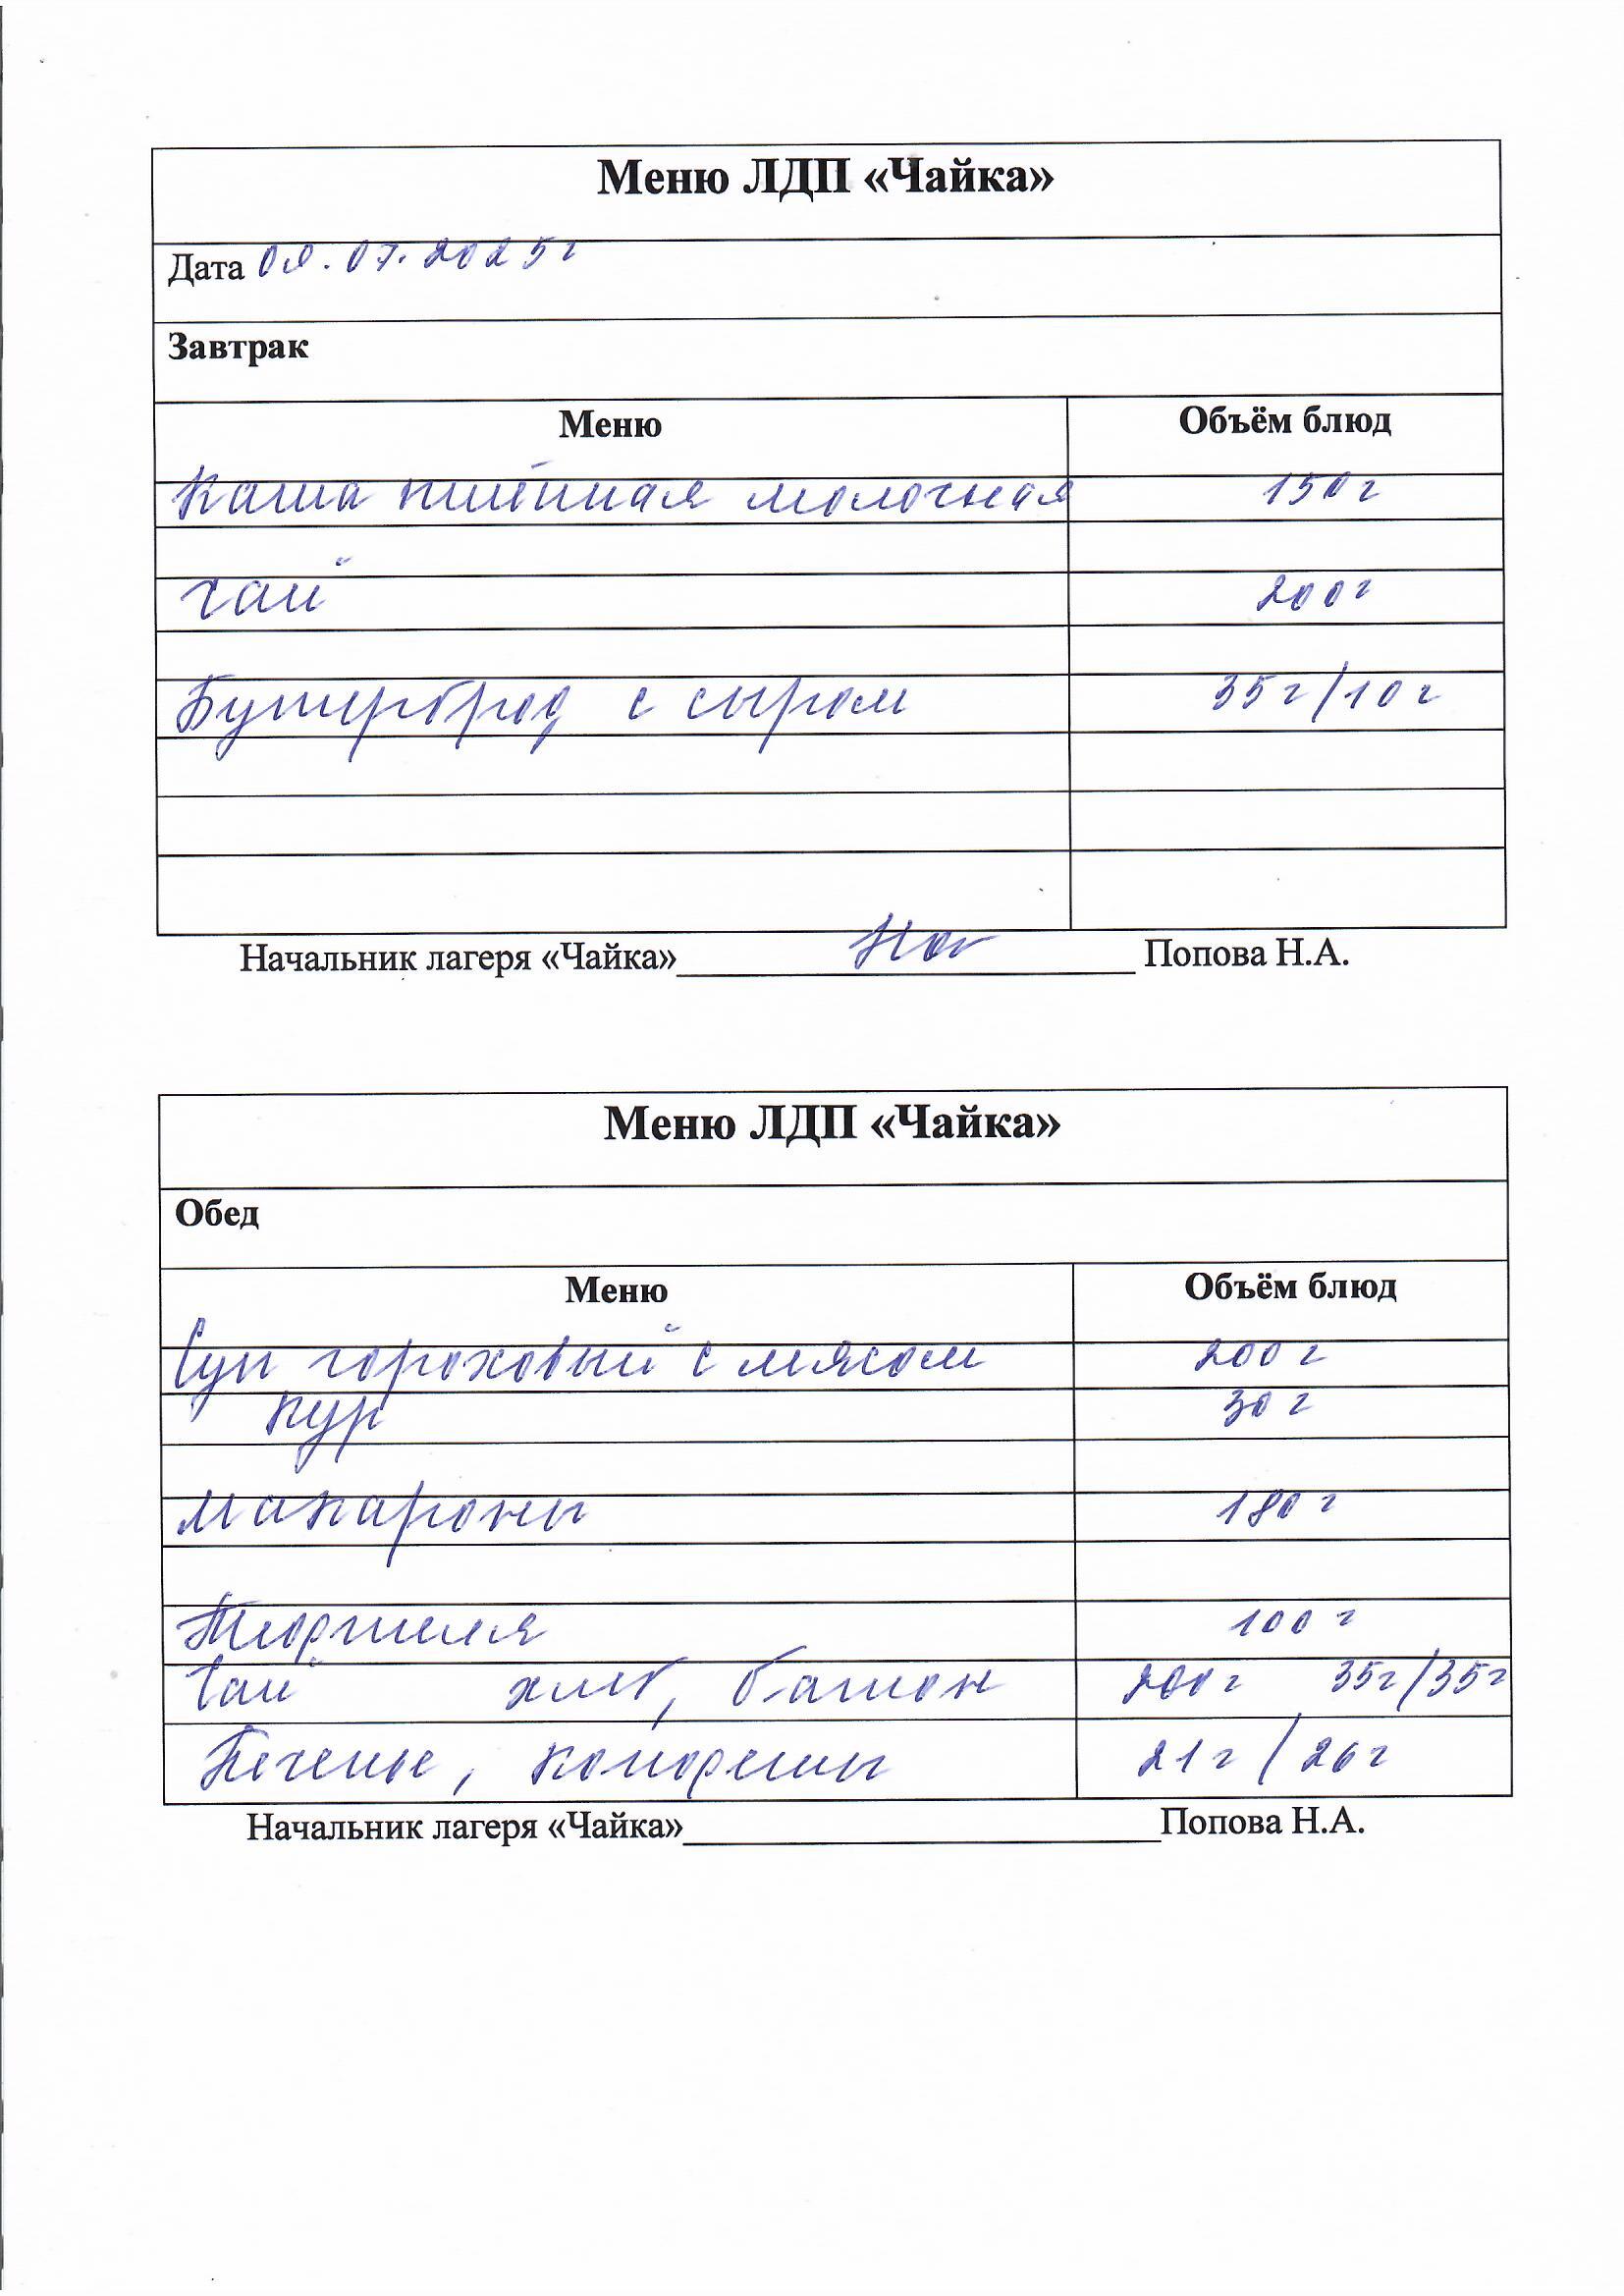 Меню ЛДП «Чайка»
Дата 02.07.2025г
Завтрак
Меню Объём блюд
Каша пшённая молочная 150г
Чай 200г
Бутерброд с сыром 35г/10г
Начальник лагеря «Чайка» Попова Н.А.
Меню ЛДП «Чайка»
Обед
Меню Объём блюд
Суп гороховый с мясом 200г
кур 30г
Макароны 180г
100г
Чай хлеб, батон 200г 35г/35г
Печенье, конфеты 21г/26г
Начальник лагеря «Чайка» Попова Н.А.